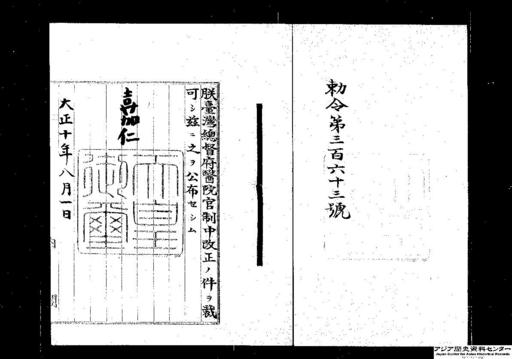 勅令第三百六十三號
朕臺灣總督府醫院官制中改正ノ件ヲ裁
可シ茲ニ之ヲ公布セシム
嘉仁
天皇御璽
大正十年八月一日
アジア歴史資料センター
Japan Center for Asian Historical Records